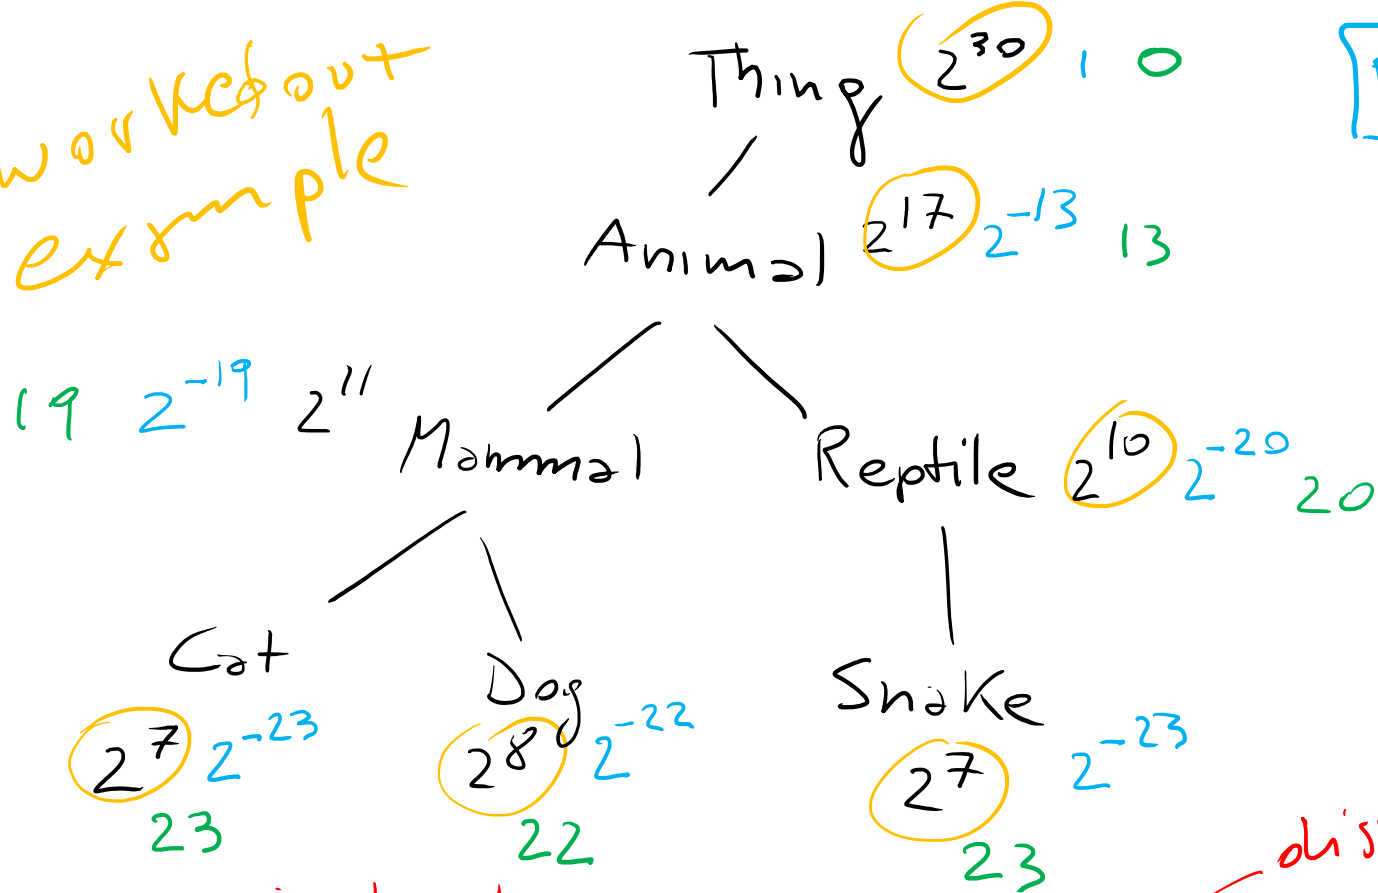 workedout
example
Thing 2^30 1 0
Animal 2^17 2^-13 13
19 2^-19 2^11 Mammal
Reptile 2^10 2^-20 20
Cat
2^7 2^-23
23
Dog
2^8 2^-22
22
Snake
2^7 2^-23
23